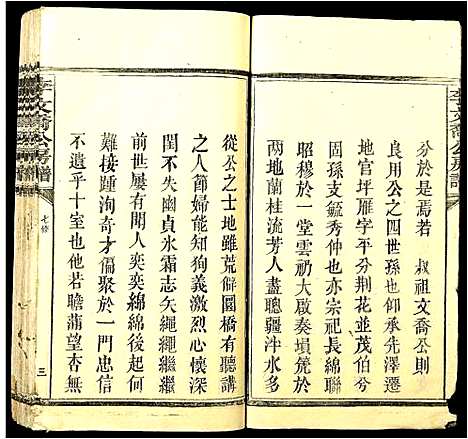 分於是焉若 叔祖文喬公則
良用公之四世孫也仰承先澤遷
地官坪雁字平分荆花並茂伯兮
固孫支毓秀仲也亦宗祀長綿聯
昭穆於一堂雲礽大啟奏塤篪於
兩地蘭桂流芳人盡聰疆沣水多
李文喬公房譜
從公之士地雖荒僻園橋有聽講
之人節婦能知狗義激烈心懷深
閨不失幽貞氷霜志矢繩繩繼繼
前世屢有聞人奕奕綿綿後起何
難接踵洵奇才偏聚於一門忠信
不遺乎十室也他若瞻蒲望杏無
李文喬公房譜
七修
三